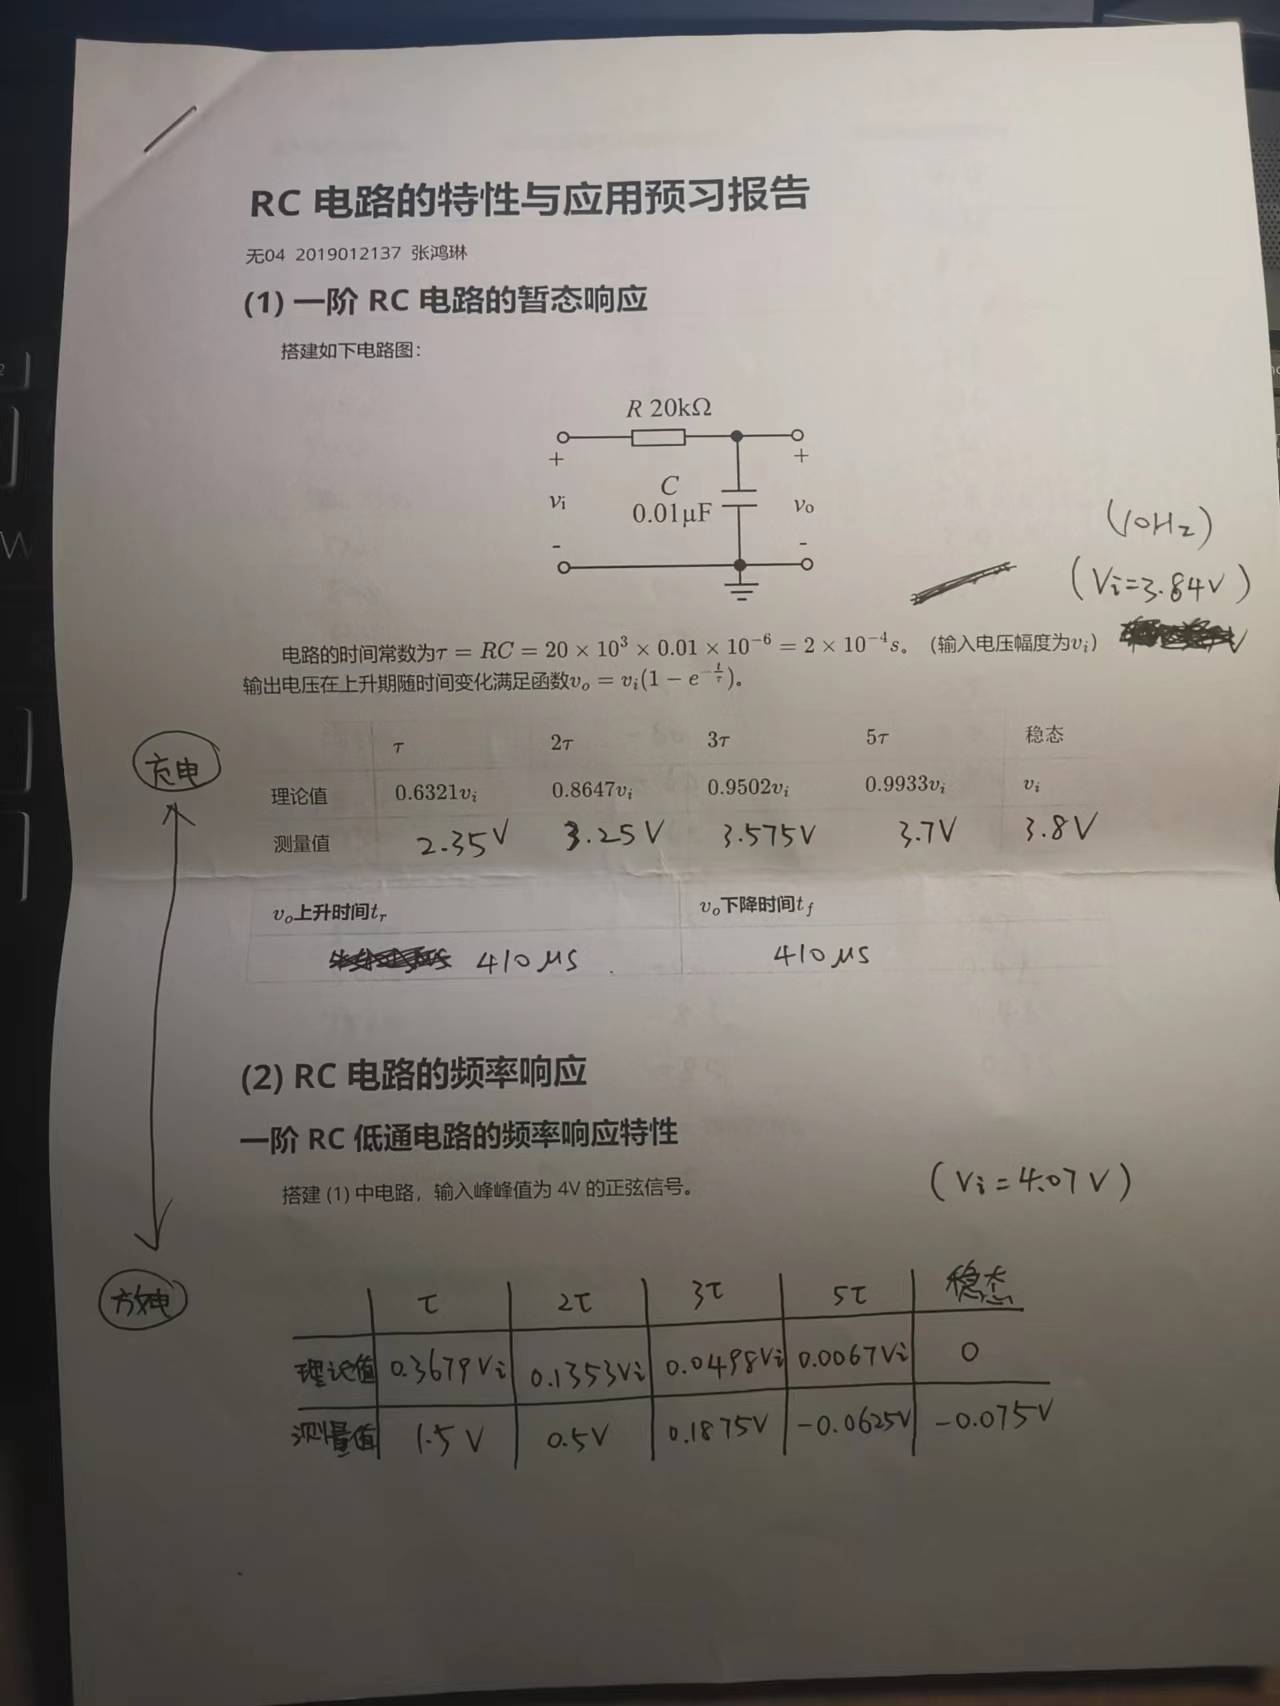 RC 电路的特性与应用预习报告
无04 2019012137 张鸿琳
(1) 一阶 RC 电路的暂态响应
搭建如下电路图：
R 20kΩ
+ +
C
vi 0.01μF vo
- -
(10Hz)
(Vi=3.84V)
电路的时间常数为τ = RC = 20 × 10³ × 0.01 × 10⁻⁶ = 2 × 10⁻⁴s。 (输入电压幅度为vᵢ)
输出电压在上升期随时间变化满足函数vₒ = vᵢ(1 − e^(−t/τ))。
充电
τ 2τ 3τ 5τ 稳态
理论值 0.6321vᵢ 0.8647vᵢ 0.9502vᵢ 0.9933vᵢ vᵢ
测量值 2.35V 3.25V 3.575V 3.7V 3.8V
vₒ上升时间tᵣ vₒ下降时间t_f
410μs 410μs
(2) RC 电路的频率响应
一阶 RC 低通电路的频率响应特性
搭建 (1) 中电路，输入峰峰值为 4V 的正弦信号。
(Vi=4.07V)
放电
τ 2τ 3τ 5τ 稳态
理论值 0.3679Vi 0.1353Vi 0.0498Vi 0.0067Vi 0
测量值 1.5V 0.5V 0.1875V -0.0625V -0.075V